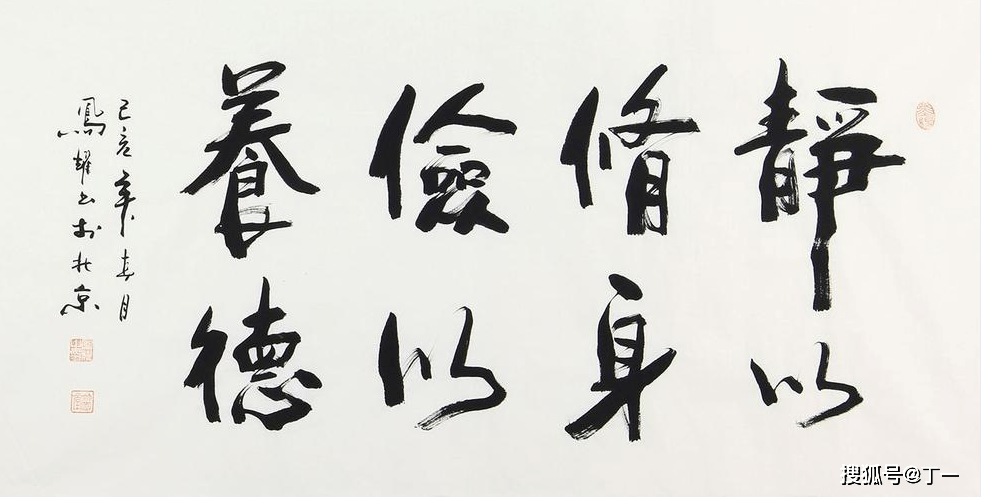 靜以
脩身
儉以
養德
己亥年春月
鳳耀書於北京
搜狐号@丁一